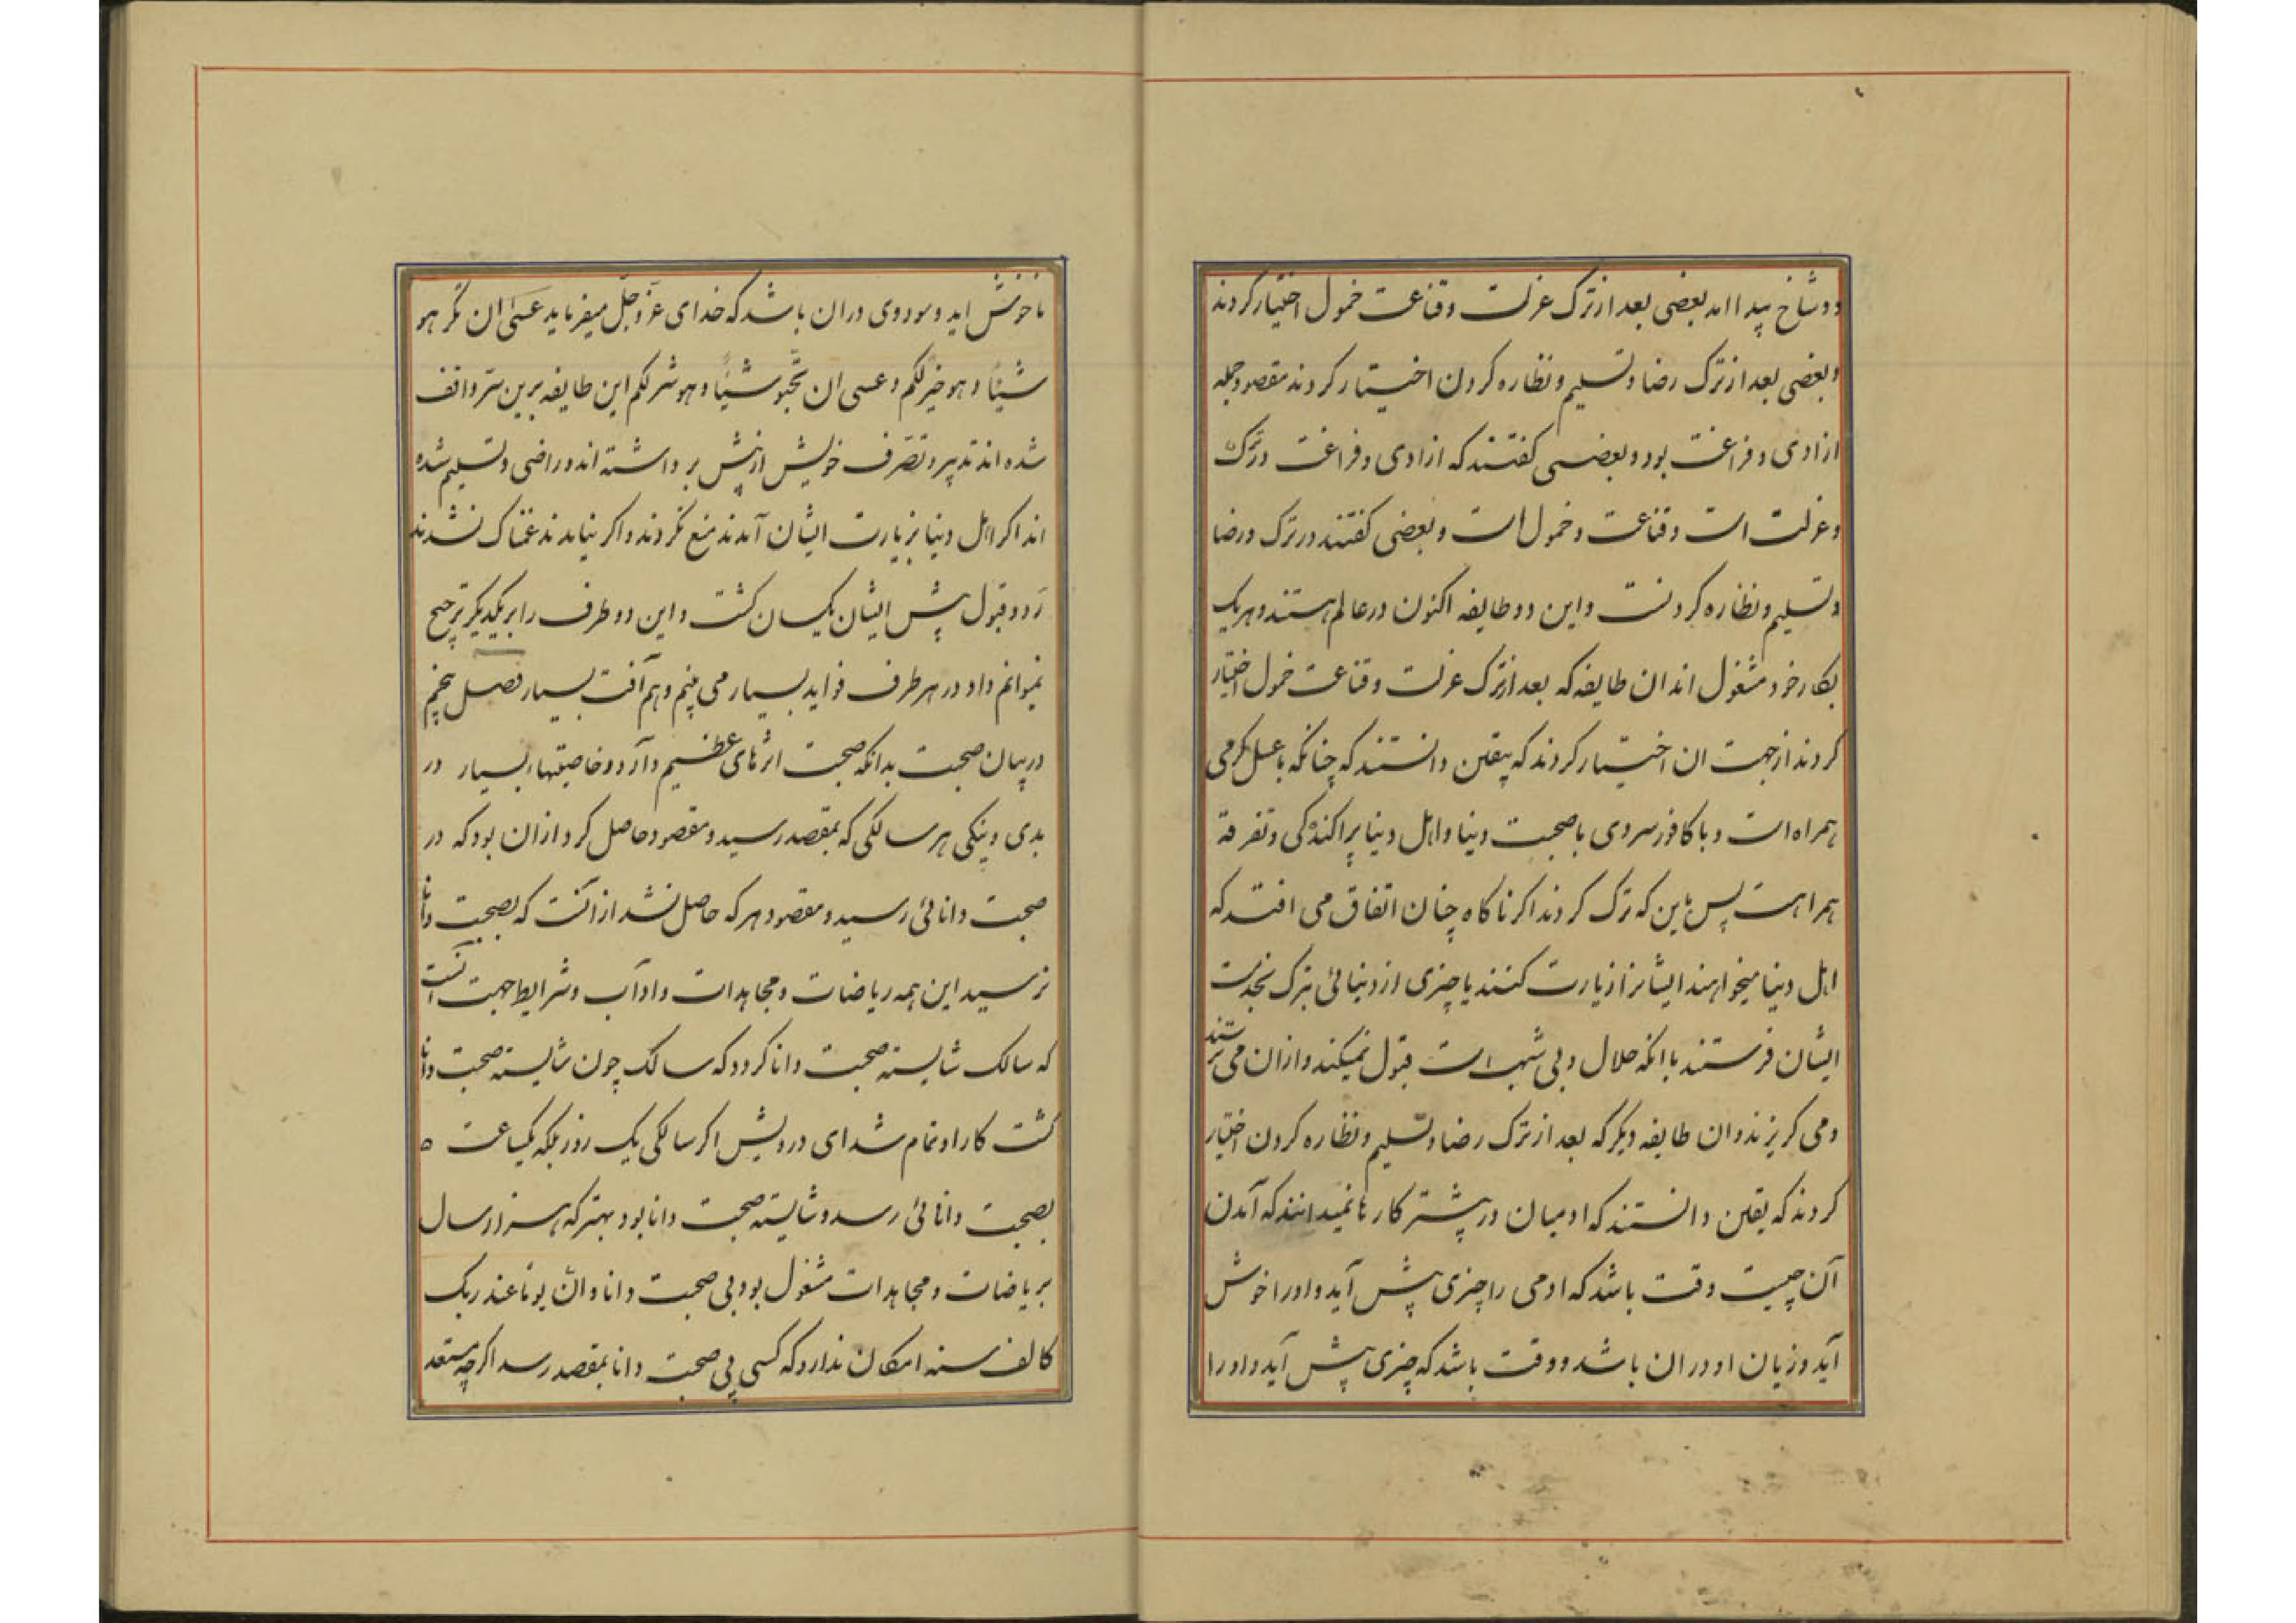 دو شاخ پیدا امد بعضی بعد از ترک عزلت و قناعت خمول اختیار کردند
و بعضی بعد از ترک رضا و تسلیم و نظاره کردن اختیار کردند مقصود جمله
ازادی و فراغت بود و بعضی کفتند که ازادی و فراغت در ترک
و عزلت است و قناعت و خمول است و بعضی کفتند در ترک و رضا
و تسلیم و نظاره کردنست و این دو طایفه اکنون در عالم هستند و هر یک
بکار خود مشغول اند ان طایفه که بعد از ترک عزلت و قناعت خمول اختیار
کردند از جهت ان اختیار کردند که بیقین دانستند که چنانکه با عسل کرمی
همراه است و با کافور سردی با صحبت دنیا و اهل دنیا پراکندکی و تفرقه
همراهست پس باین که ترک کردند اکر ناکاه چنان اتفاق می افتد که
اهل دنیا میخواهند ایشانرا زیارت کنند یا چیزی از دنیائی بترک بخدمت
ایشان فرستند باانکه حلال و بی شبهه است قبول نمیکند و ازان می ترسند
و می کریزند و ان طایفه دیکر که بعد از ترک رضا و تسلیم و نظاره کردن اختیار
کردند که یقین دانستند که ادمیان در بیشتر کارها نمیدانند که آمدن
آن چیست وقت باشد که ادمی را چیزی پیش آید و اورا خوش
آید و زیان او دران باشد و وقت باشد که چیزی پیش آید و اورا
ناخوش اید و سود وی دران باشد که خدای عزّ و جلّ میفرماید عسی ان تکرهو
شیئاً و هو خیر لکم و عسی ان تحبّو شیئاً و هو شر لکم این طایفه برین سرّ واقف
شده اند تدبیر و تصرّف خویش از پیش برداشته اند و راضی و تسلیم شده
اند اکر اهل دنیا بزیارت ایشان آمدند منع نکردند و اکر نیامدند غمناک نشدند
ردّ و قبول پیش ایشان یکسان کشت و این دو طرف را بر یکدیکر ترجیح
نمیوانم داد و در هر طرف فواید بسیار می بینم و هم آفت بسیار فصل پنجم
در بیان صحبت بدانکه صحبت اثرهای عظیم دارد و خاصیتهاء بسیار در
بدی و نیکی هر سالکی که بمقصد رسید و مقصود حاصل کرد ازان بود که در
صحبت دانائی رسید و مقصود هر که حاصل نشد ازآنست که بصحبت دانا
نرسید این همه ریاضات و مجاهدات و اداب و شرایط جهت آنست
که سالک شایسته صحبت دانا کردد که سالک چون شایسته صحبت دانا
کشت کار او تمام شد ای درویش اکر سالکی یک روز بلکه یکساعت ه
بصحبت دانائی رسد و شایسته صحبت دانا بود بهتر که هزار سال
بریاضات و مجاهدات مشغول بود بی صحبت دانا و انّ یوما عند ربک
کالف سنه امکان ندارد که کسی بی صحبت دانا بمقصد رسد اکرچه مستعد